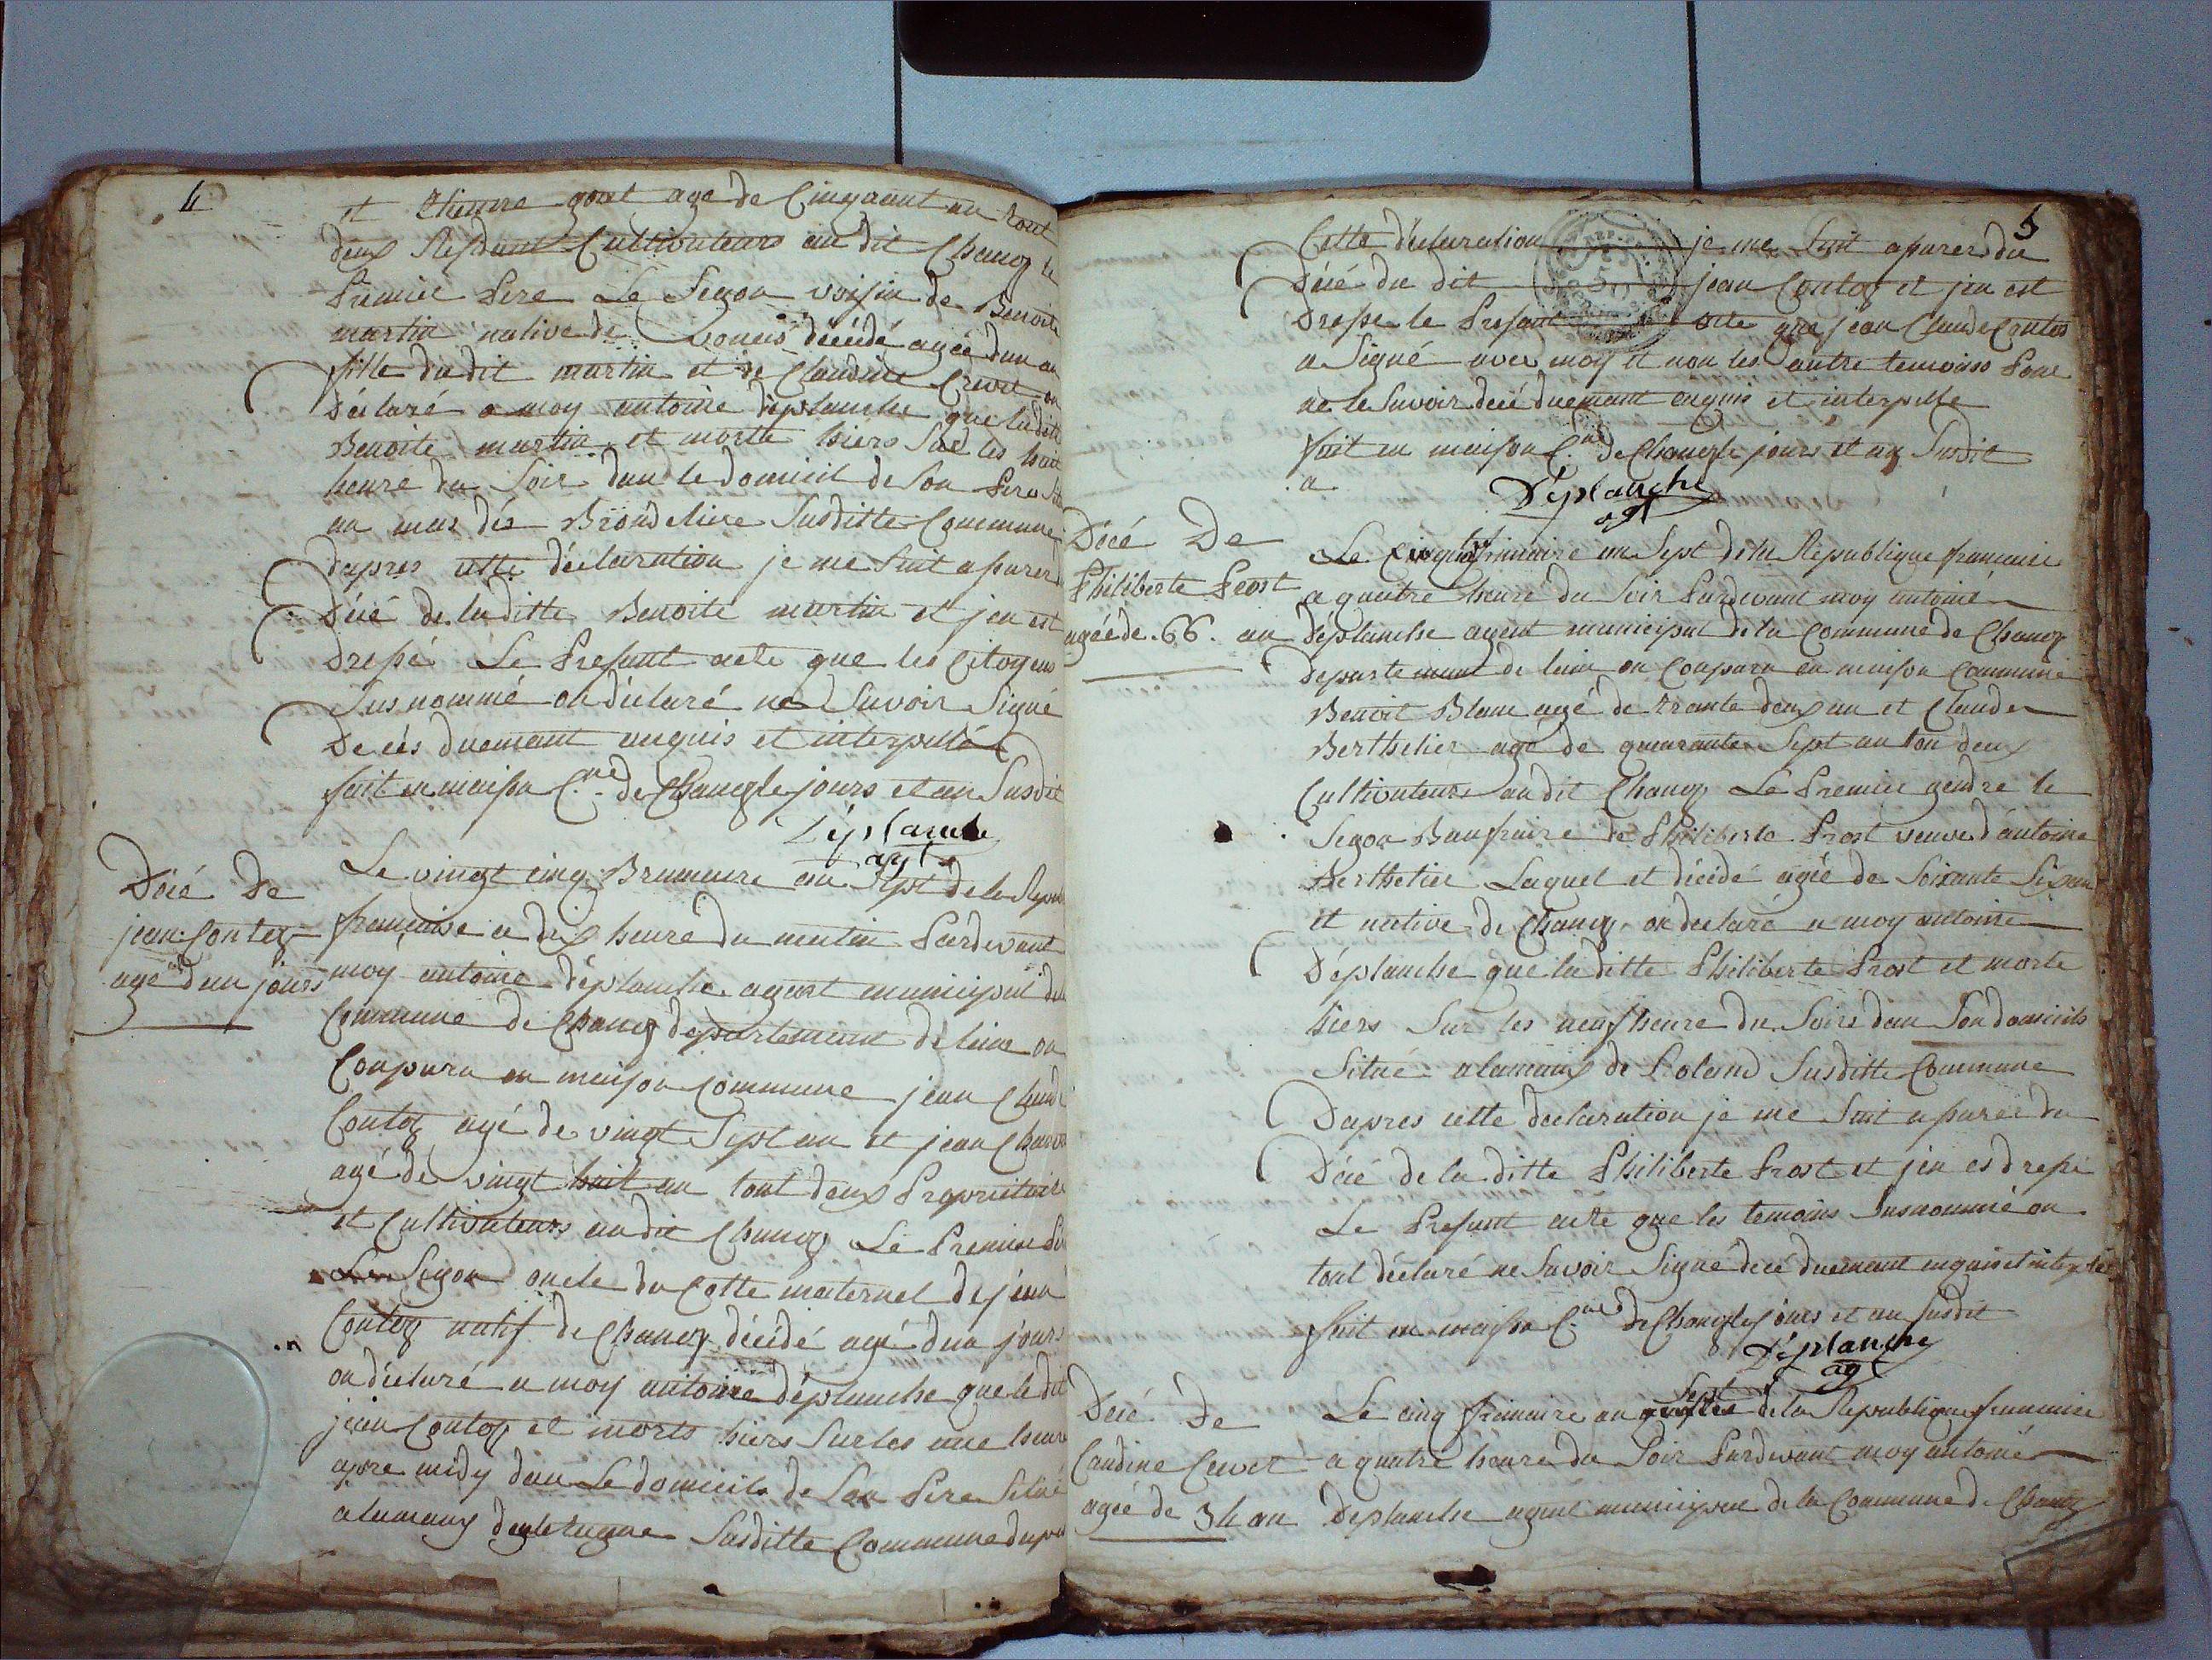 4
et Etienne goat age de Cinquant an tout
deux Residant Cultivateurs au dit Chanoz le
Premier Pere Le Segon voisin de Benoite
martin native de décédé agée dun an
fille du dit martin et de Claudine Crevet on
Déclaré a moy antoine déplanche que la dite
Benoite martin et morte hiers Sur les huit
heure du Soir dan le domicil de Son Pere
au mas des Susditte Commune
dapres cette déclaration je me Suit aparer
Décé de laditte Benoite martin et jen est
dressé Le Present acte que les Citoyens
Susnommé on déclaré ne Savoir Signé
De ces duemant enquis et interpellé
fait en maison C.ne de Chanoz le jours et an Susdit
Déplanche
agt
Décé De
jean Contoz
agé d'un jours
Le vingt cinq Brumaire an Sept de la Repu
française a dix heure du matin Pardevant
moy antoine déplanche agent municipal de la
Commune de Chanoz departement de lain on
Conparu en maison Commune jean Claude
Contoz agé de vingt Sept an et jean
agé de vingt huit an tout deux Propriétaire
et Cultivateurs audit Chanoz Le Premier
Le Segon oncle du Cotte maternel de jean
Contoz natif de Chanoz décédé agé dun jours
on déclaré a moy antoine déplanche que le dit
jean Contoz et morts hiers Sur les une heure
apre midy dan Le domicile de Son Pere Situé
alamaux Susditte Commune dapres
5
Cette déclaration je me Suit aparer du
Décé du dit jean Contoz et jen est
Dresse le Presant acte que jean Claude Contoz
a Signé avec moy et non les autre temoins Pour
ne le Savoir decé duemant enquis et interpelle
fait en maison C.ne de Chanoz le jours et an Susdit
a
Déplanche
agt
Décé De
Philiberte Prost
agée de .66. an
Le Cinq frimaire an Sept de la Republique francaise
a quatre heure du Soir Pardevant moy antoine
Déplanche agent municipal de la Commune de Chanoz
Departemant de lain on Conparu en maison Commune
Benoit Blanc agé de trante deux an et Claude
Berthelier agé de quarante Sept an tou deux
Cultivateurs audit Chanoz Le Premier gendre le
Segon Baufraire de Philiberte Prost veuve d'antoine
Berthelier Laquel et décédé agée de Soixante Six an
et native de Chanoz on déclaré a moy antoine
Déplanche que laditte Philiberte Prost et morte
hiers Sur les neuf heure du Soirs dan Son domicile
Situé alamaux de Poland Susditte Commune
Dapres cette declaration je me Suit aparer du
Décé de la ditte Philiberte Prost et jen es dressé
Le Present acte que les temoins Susnommé on
tout déclaré ne Savoir Signé decé duemant enquis et interpelé
fait en maison C.ne de Chanoz le jours et an Susdit
Déplanche
agt
Décé De
Caudine Crevet
agée de 34 an
Sept
Le cinq frimaire an de la Republique francaise
a quatre heure du Soir Pardevant moy antoine
Deplanche agent municipal de la Commune de Chanoz